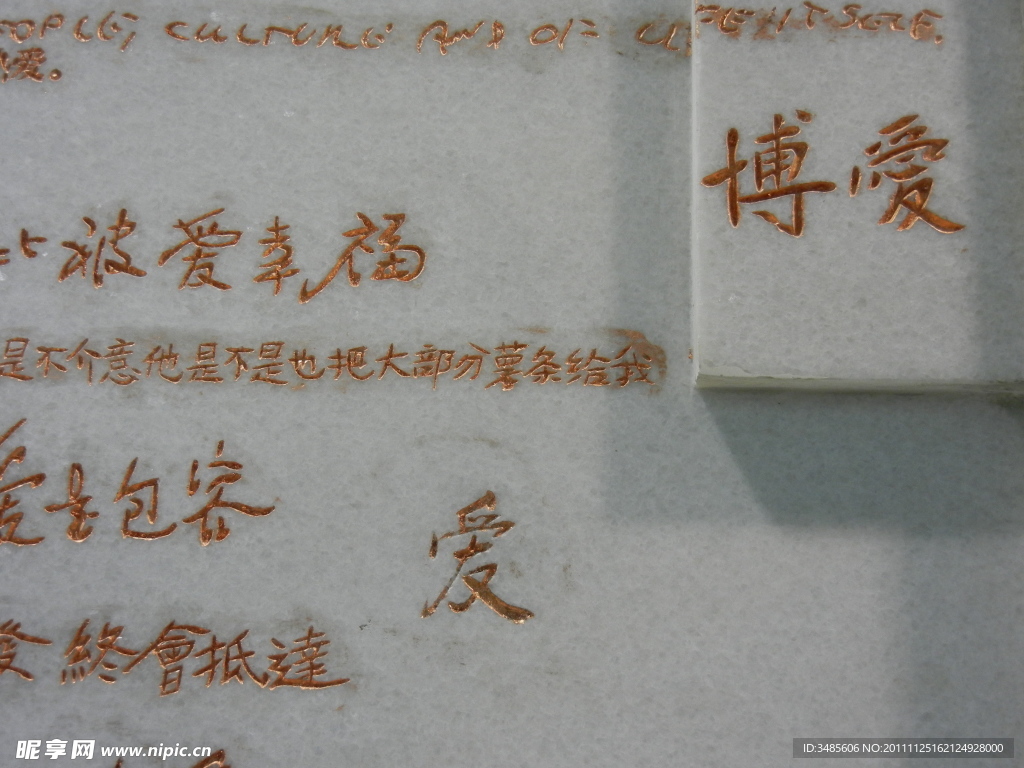 PEOPLE, CULTURE AND OF
愛。
博愛
比被爱幸福
是不介意他是不是也把大部分薯条给我
爱是包容
爱
愛終會抵達
昵享网 www.nipic.cn
ID:3485606 NO:20111125162124928000